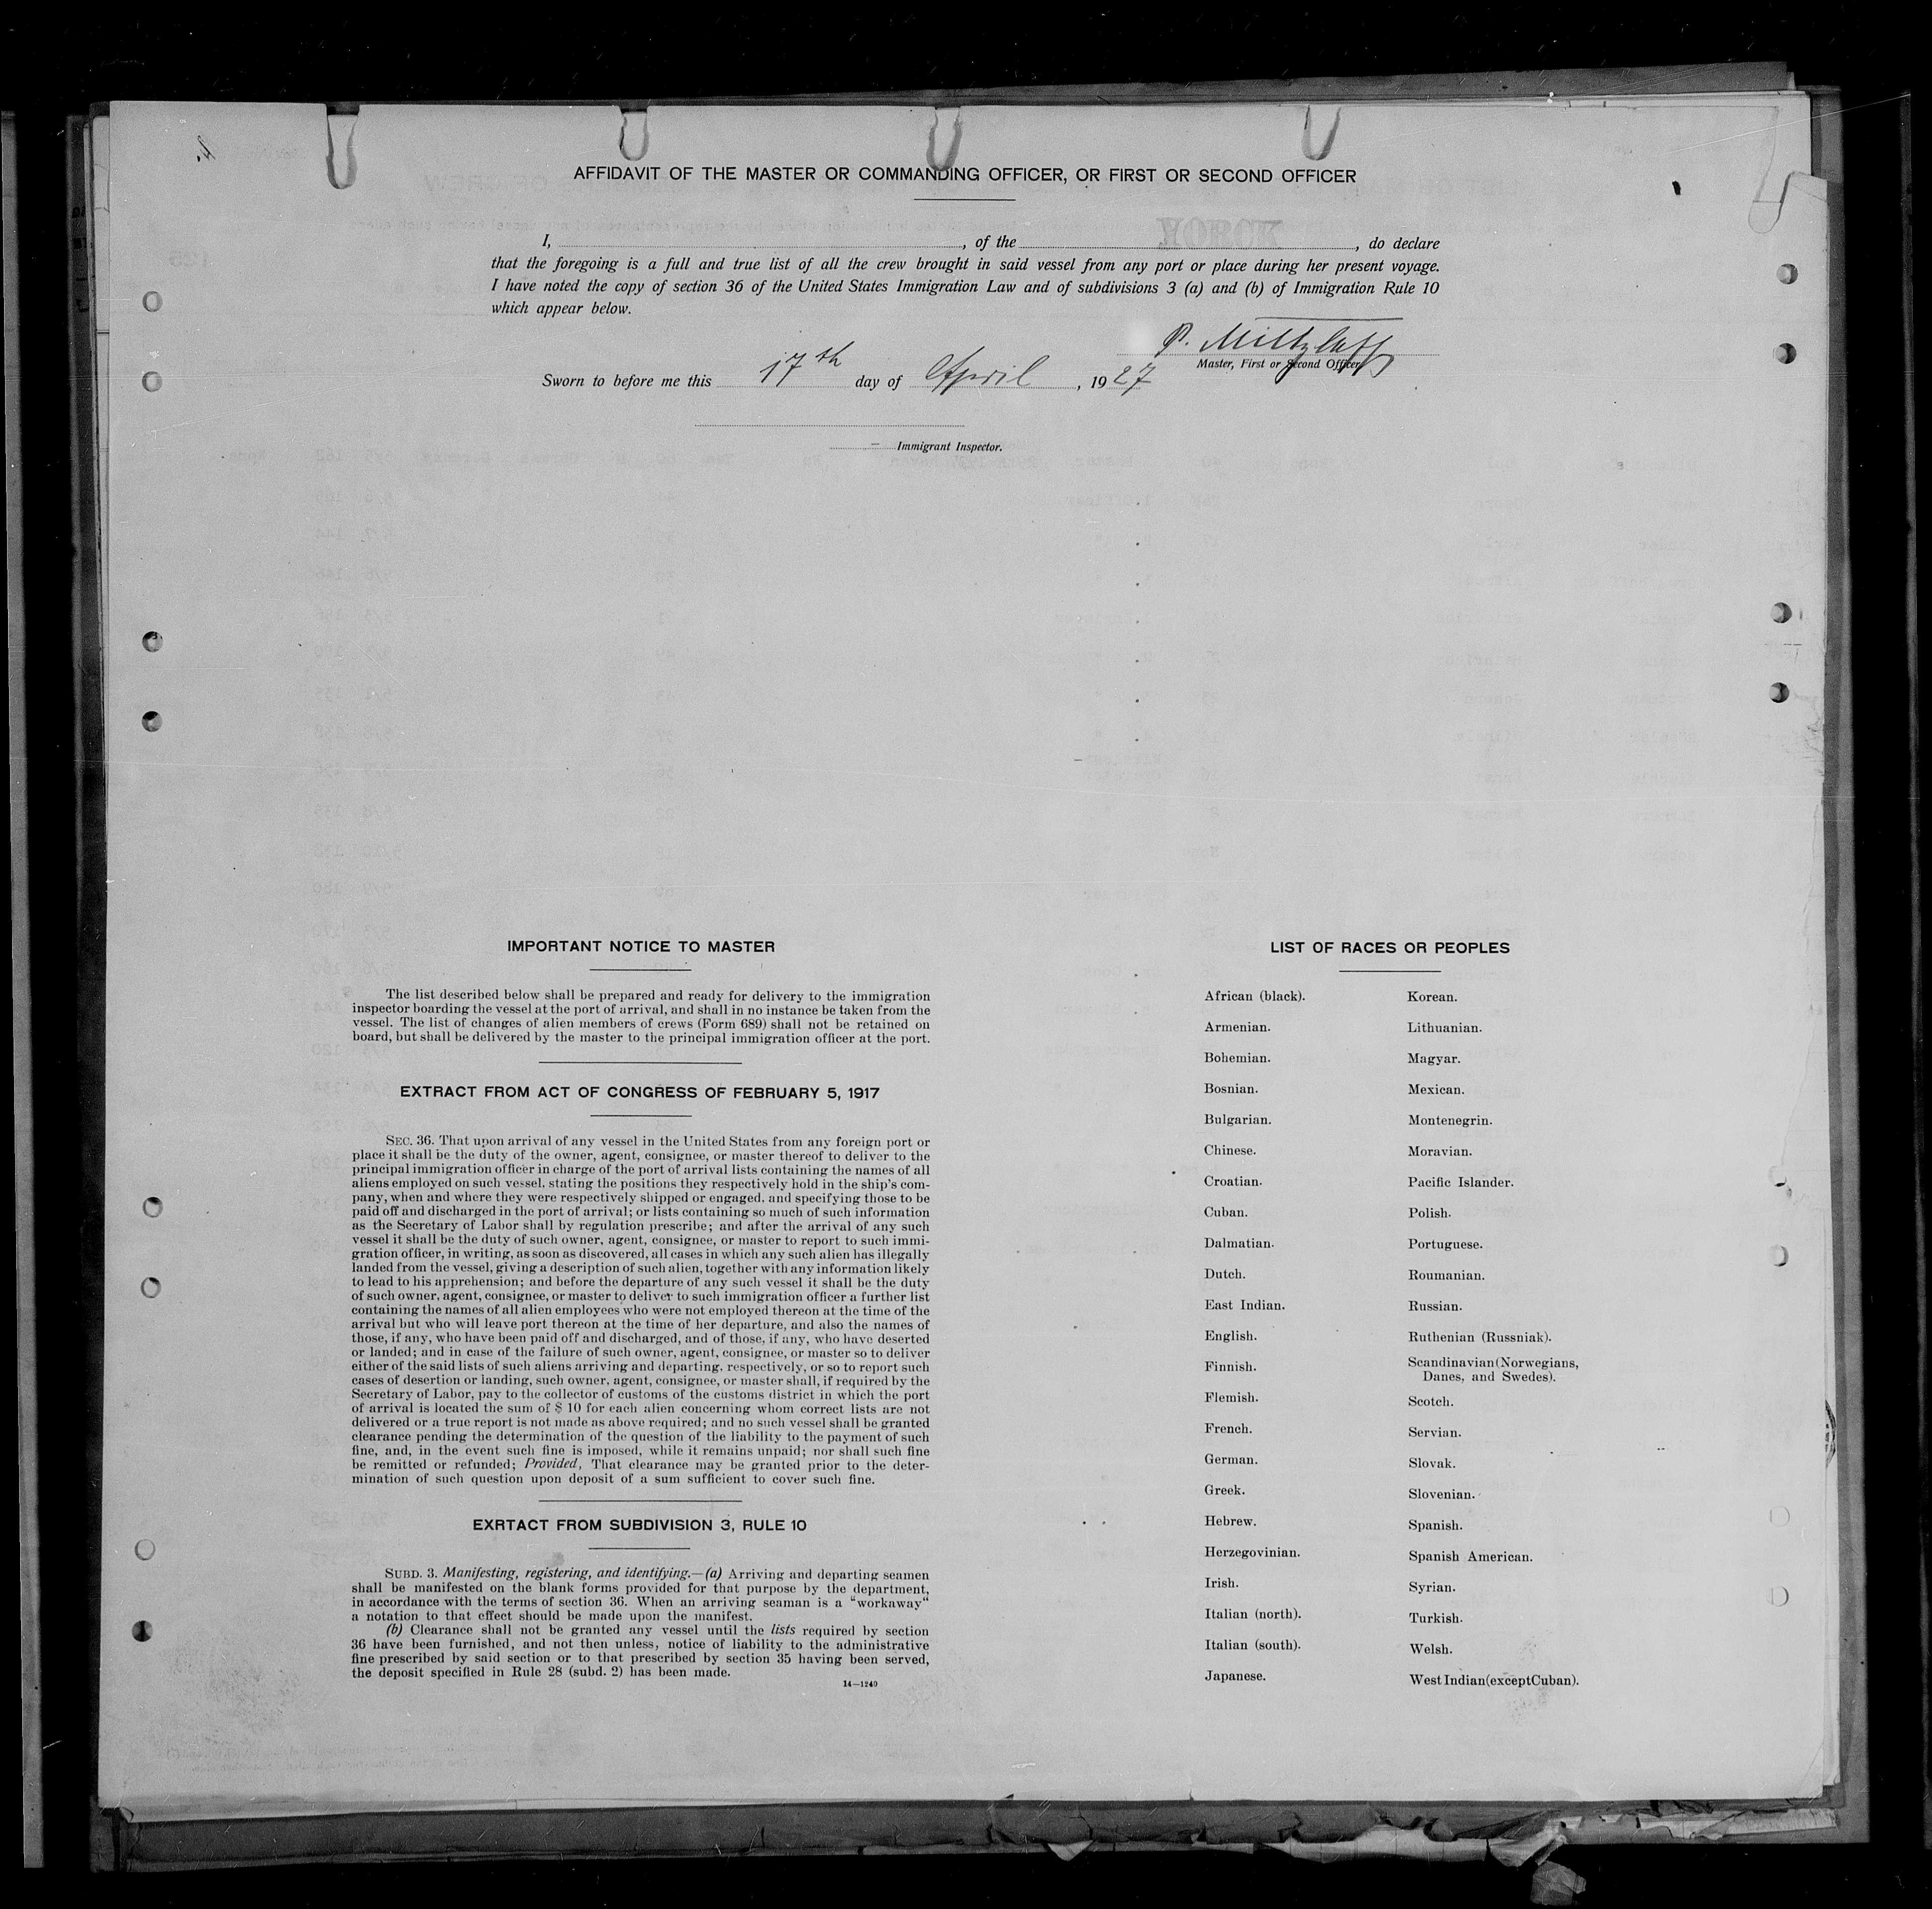 AFFIDAVIT OF THE MASTER OR COMMANDING OFFICER, OR FIRST OR SECOND OFFICER
I, , of the , do declare
that the foregoing is a full and true list of all the crew brought in said vessel from any port or place during her present voyage.
I have noted the copy of section 36 of the United States Immigration Law and of subdivisions 3 (a) and (b) of Immigration Rule 10
which appear below.
P. Miltzlaff
Master, First or Second Officer
Sworn to before me this 17th day of April , 1927
Immigrant Inspector.
IMPORTANT NOTICE TO MASTER
The list described below shall be prepared and ready for delivery to the immigration
inspector boarding the vessel at the port of arrival, and shall in no instance be taken from the
vessel. The list of changes of alien members of crews (Form 689) shall not be retained on
board, but shall be delivered by the master to the principal immigration officer at the port.
EXTRACT FROM ACT OF CONGRESS OF FEBRUARY 5, 1917
SEC. 36. That upon arrival of any vessel in the United States from any foreign port or
place it shall be the duty of the owner, agent, consignee, or master thereof to deliver to the
principal immigration officer in charge of the port of arrival lists containing the names of all
aliens employed on such vessel, stating the positions they respectively hold in the ship's com-
pany, when and where they were respectively shipped or engaged, and specifying those to be
paid off and discharged in the port of arrival; or lists containing so much of such information
as the Secretary of Labor shall by regulation prescribe; and after the arrival of any such
vessel it shall be the duty of such owner, agent, consignee, or master to report to such immi-
gration officer, in writing, as soon as discovered, all cases in which any such alien has illegally
landed from the vessel, giving a description of such alien, together with any information likely
to lead to his apprehension; and before the departure of any such vessel it shall be the duty
of such owner, agent, consignee, or master to deliver to such immigration officer a further list
containing the names of all alien employees who were not employed thereon at the time of the
arrival but who will leave port thereon at the time of her departure, and also the names of
those, if any, who have been paid off and discharged, and of those, if any, who have deserted
or landed; and in case of the failure of such owner, agent, consignee, or master so to deliver
either of the said lists of such aliens arriving and departing, respectively, or so to report such
cases of desertion or landing, such owner, agent, consignee, or master shall, if required by the
Secretary of Labor, pay to the collector of customs of the customs district in which the port
of arrival is located the sum of $ 10 for each alien concerning whom correct lists are not
delivered or a true report is not made as above required; and no such vessel shall be granted
clearance pending the determination of the question of the liability to the payment of such
fine, and, in the event such fine is imposed, while it remains unpaid; nor shall such fine
be remitted or refunded; Provided, That clearance may be granted prior to the deter-
mination of such question upon deposit of a sum sufficient to cover such fine.
EXRTACT FROM SUBDIVISION 3, RULE 10
SUBD. 3. Manifesting, registering, and identifying.—(a) Arriving and departing seamen
shall be manifested on the blank forms provided for that purpose by the department,
in accordance with the terms of section 36. When an arriving seaman is a "workaway"
a notation to that effect should be made upon the manifest.
(b) Clearance shall not be granted any vessel until the lists required by section
36 have been furnished, and not then unless, notice of liability to the administrative
fine prescribed by said section or to that prescribed by section 35 having been served,
the deposit specified in Rule 28 (subd. 2) has been made.
14—1240
LIST OF RACES OR PEOPLES
African (black).
Armenian.
Bohemian.
Bosnian.
Bulgarian.
Chinese.
Croatian.
Cuban.
Dalmatian.
Dutch.
East Indian.
English.
Finnish.
Flemish.
French.
German.
Greek.
Hebrew.
Herzegovinian.
Irish.
Italian (north).
Italian (south).
Japanese.
Korean.
Lithuanian.
Magyar.
Mexican.
Montenegrin.
Moravian.
Pacific Islander.
Polish.
Portuguese.
Roumanian.
Russian.
Ruthenian (Russniak).
Scandinavian (Norwegians,
Danes, and Swedes).
Scotch.
Servian.
Slovak.
Slovenian.
Spanish.
Spanish American.
Syrian.
Turkish.
Welsh.
West Indian (except Cuban).